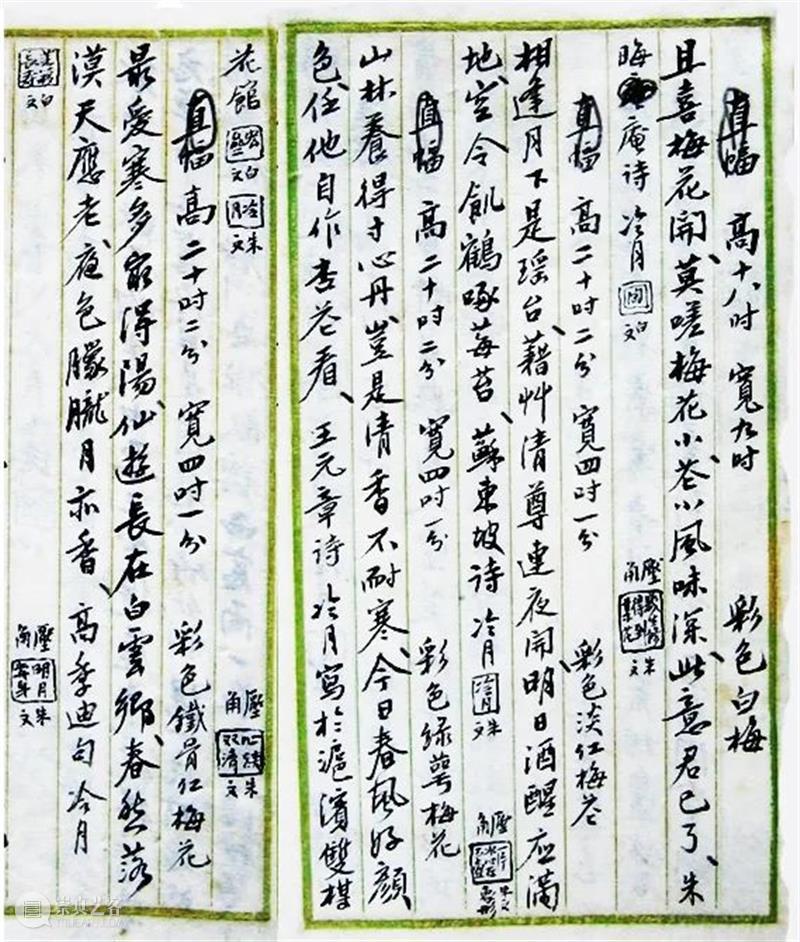 直幅 高十八吋 寬九吋 彩色白梅
且喜梅花開、莫嗟梅花小、花小風味深、此意君已了、朱
晦庵詩 冷月 白文 壓角 朱文
直幅 高二十吋二分 寬四吋一分 彩色淡红梅花
相逢月下是瑶台、藉艸清尊連夜開、明日酒醒应滿
地、空令飢鶴啄莓苔、蘇東坡詩 冷月 冷月 朱文 壓角 朱文
直幅 高二十吋二分 寬四吋一分 彩色绿萼梅花
山林養得寸心丹、豈是清香不耐寒、今日春風好顔
色、任他自作杏花看、王元章詩 冷月寫於滬濱雙楳
花館 白文 冷月 朱文 壓角 心緒双清 朱文
直幅 高二十吋二分 寬四吋一分 彩色鐵骨红梅花
最愛寒多最得陽、仙遊長在白雲鄉、春愁落
漠天應老、夜色朦朧月亦香、高季迪句 冷月
白文 壓角 明月前身 朱文